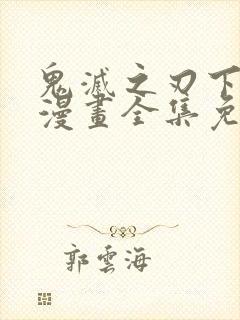 鬼滅之刃下
漫畫全集免
郭雲海